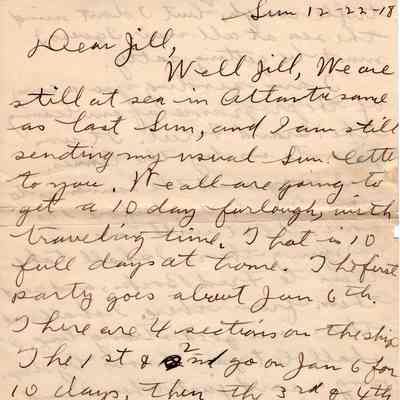 Sun 12-22-18
Dear Jill,
Well Jill, We are
still at sea in Atlantic same
as last Sun, and I am still
sending my usual Sun. lette
to you. We all are going to
get a 10 day furlough, with
traveling time. That is 10
full days at home. The first
party goes about Jan 6th.
There are 4 sections on the ship
The 1st & 2nd go on Jan 6 for
10 days, then th 3rd & 4th